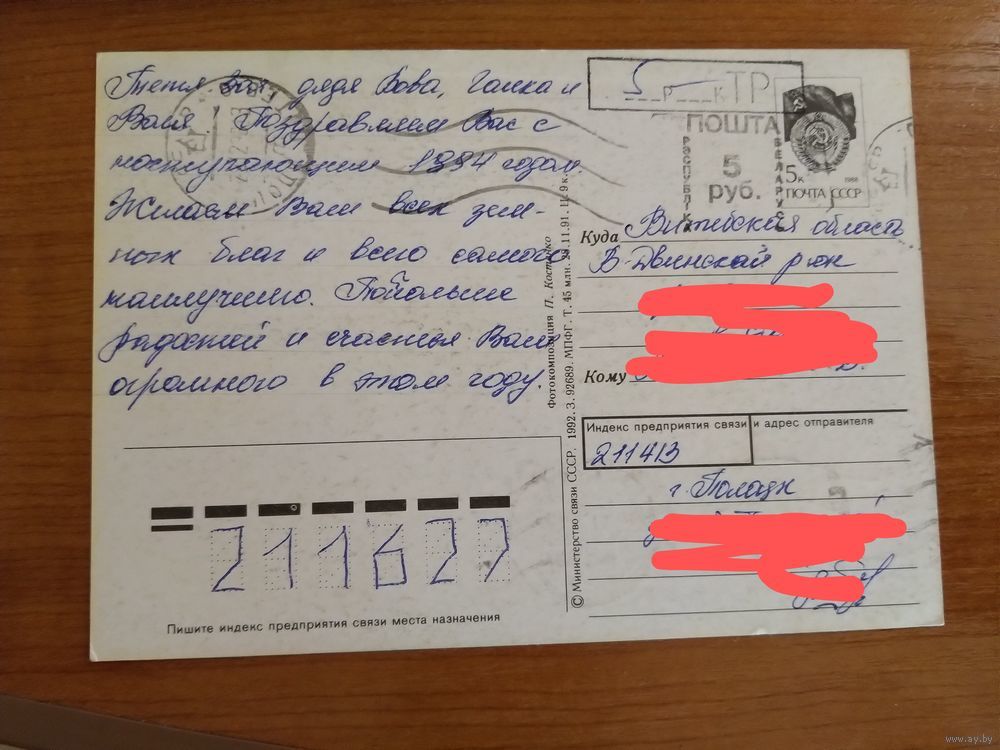 Тетя Валя, дядя Вова, Галка и
Ваня! Поздравляем Вас с
наступающим 1994 годом.
Желаем Вам всех зем-
ных благ и всего самого
наилучшего. Побольше
радостей и счастья Вам
огромного в этом году.
5
р к ТР
ПОШТА
РЭСПУБЛІКА
БЕЛАРУСЬ
5
руб.
5к
1988
ПОЧТА СССР
Куда Витебская область
В-Двинский р-он
Кому
Индекс предприятия связи и адрес отправителя
211413
г. Полацк
211627
Пишите индекс предприятия связи места назначения
Фотокомпозиция П. Костенко
© Министерство связи СССР. 1992. З. 92689. МПФГ. Т. 45 млн. 28.11.91. Ц. 9 к.
www.ay.by